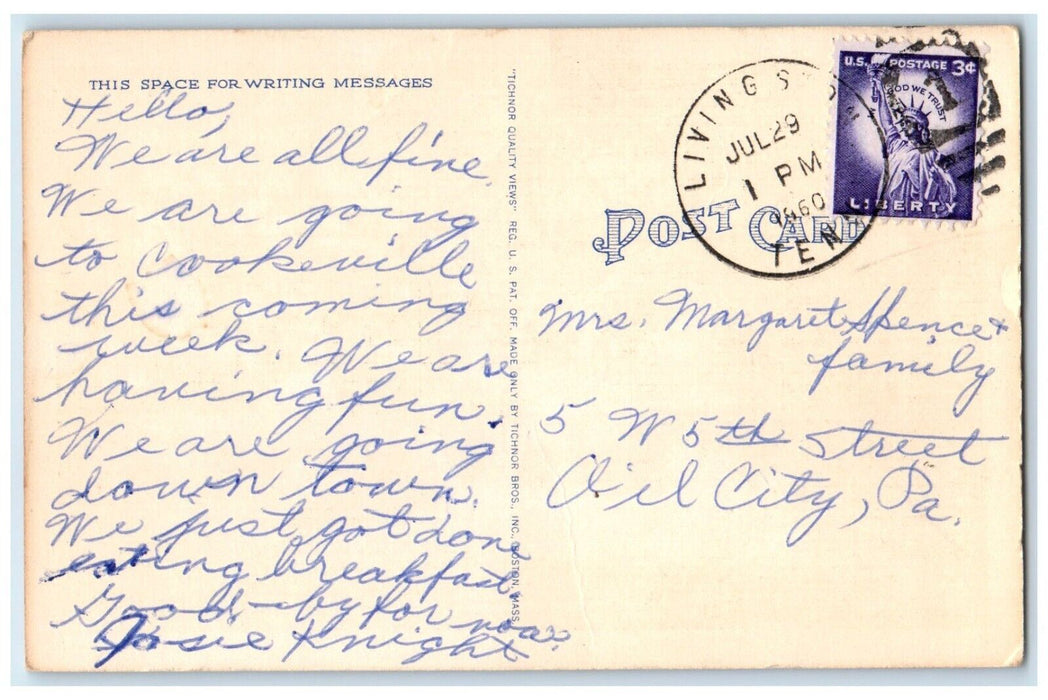 THIS SPACE FOR WRITING MESSAGES
Hello,
We are all fine.
We are going
to Cookeville
this coming
week. We are
having fun.
We are going
down town.
We just got done
eating breakfast
Good-by for now.
Josie Knight
"TICHNOR QUALITY VIEWS" REG. U. S. PAT. OFF. MADE ONLY BY TICHNOR BROS., INC., BOSTON, MASS.
LIVINGSTON
JUL 29
1 PM
1960
TENN
U.S. POSTAGE 3¢
IN GOD WE TRUST
LIBERTY
POST CARD
Mrs. Margaret Spence &
family
5 W 5th Street
Oil City, Pa.